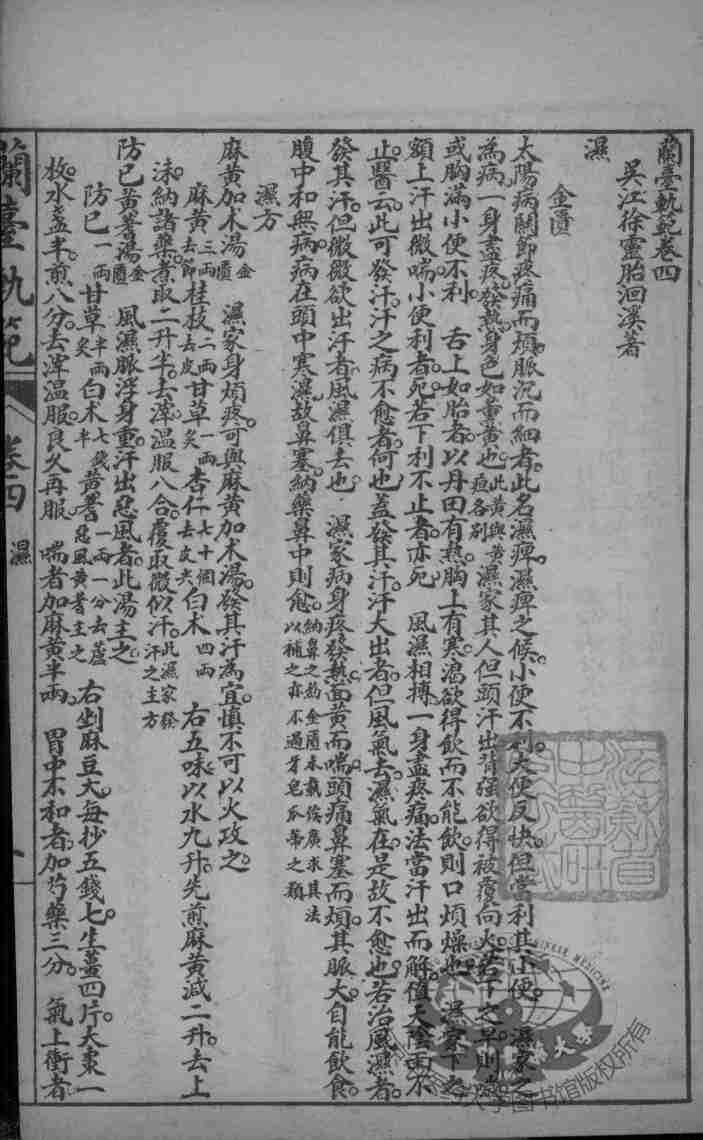 蘭臺軌範卷四
吳江徐靈胎洄溪著
濕
金匱
太陽病關節疼痛而煩脈沉而細者此名濕痺濕痺之候小便不利大便反快但當利其小便 濕家之
為病一身盡疼發熱身色如熏黃也此黃與黃疸各別 濕家其人但頭汗出背強欲得被覆向火若下之早則噦
或胸滿小便不利 舌上如胎者以丹田有熱胸上有寒渴欲得飲而不能飲則口煩燥也 濕家下之
額上汗出微喘小便利者死若下利不止者亦死 風濕相搏一身盡疼痛法當汗出而解值天陰雨不
止醫云此可發汗汗之病不愈者何也蓋發其汗汗大出者但風氣去濕氣在是故不愈也若治風濕者
發其汗但微微欲出汗者風濕俱去也 濕家病身疼發熱面黃而喘頭痛鼻塞而煩其脈大自能飲食
腹中和無病病在頭中寒濕故鼻塞納藥鼻中則愈納鼻之藥金匱未載後廣求其法以補之亦不過牙皂瓜蒂之類
濕方
麻黃加朮湯金匱 濕家身煩疼可與麻黃加朮湯發其汗為宜慎不可以火攻之
麻黃三兩去節 桂枝二兩去皮 甘草一兩炙 杏仁七十個去皮尖 白朮四兩 右五味以水九升先煎麻黃減二升去上
沫納諸藥煮取二升半去滓溫服八合覆取微似汗此濕家發汗之主方
防己黃蓍湯金匱 風濕脈浮身重汗出惡風者此湯主之
防己一兩 甘草半兩炙 白朮七錢半 黃蓍一兩一分去蘆惡風黃蓍主之 右剉麻豆大每抄五錢匕生薑四片大棗一
枚水盞半煎八分去滓溫服良久再服 喘者加麻黃半兩 胃中不和者加芍藥三分 氣上衝者
蘭臺軌範 卷四 濕 一